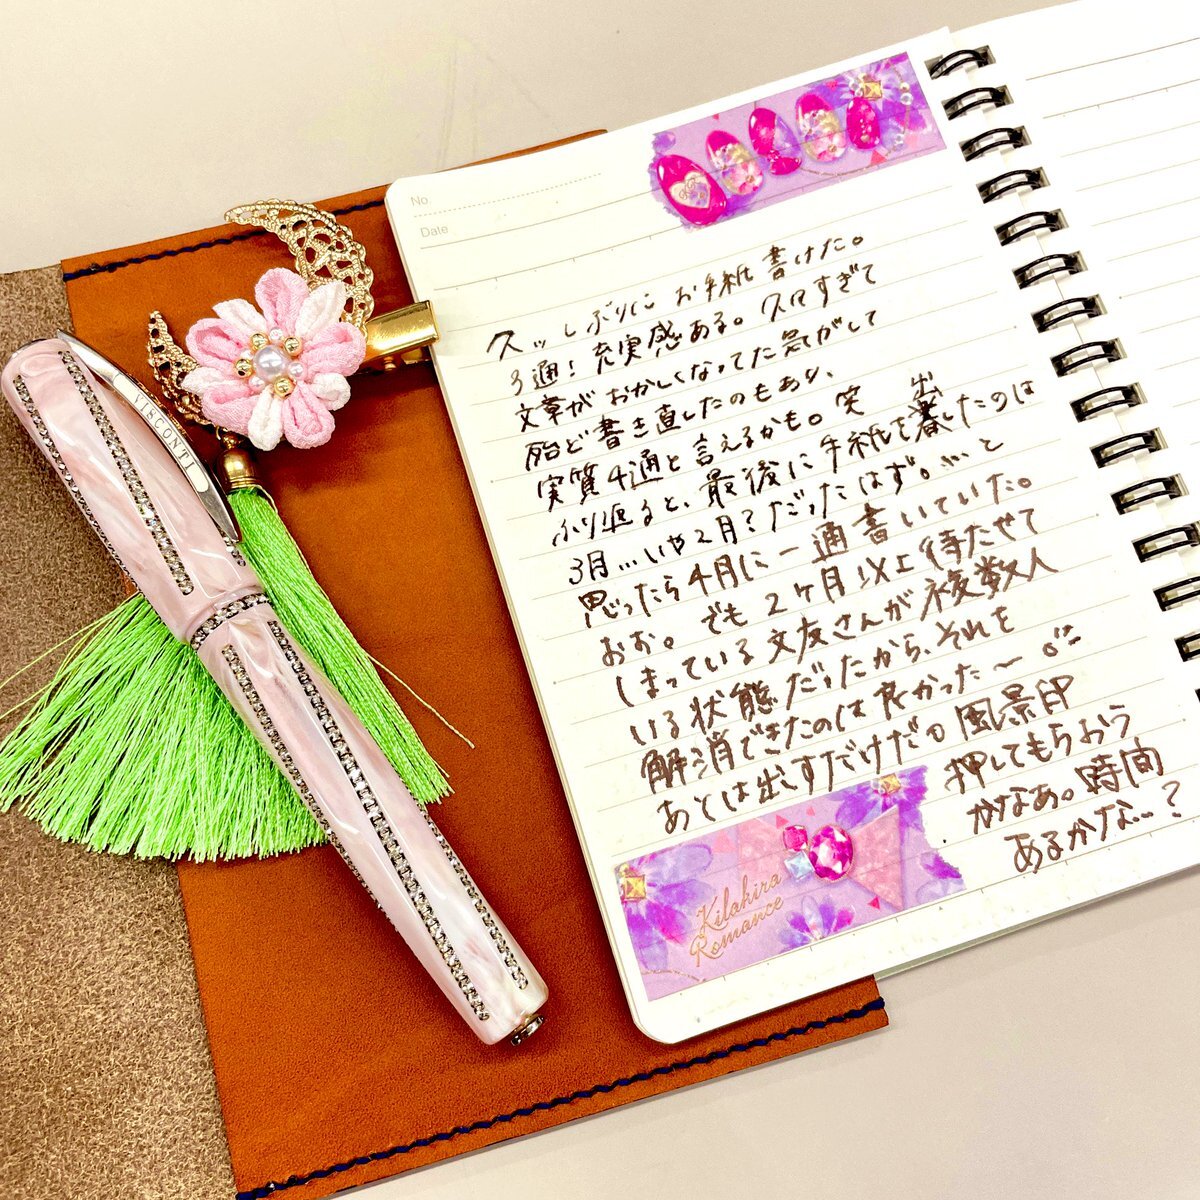 No
Date
久ッしぶりに お手紙 書けた。
3通！充実感ある。久々すぎて
文章が おかしくなってた気がして
殆ど書き直したのもあり、
実質4通と言えるかも。笑
ふり返ると、最後に手紙を出したのは
3月…いや2月？だったはず。…と
思ったら4月に一通書いていた。
おお。でも 2ヶ月以上待たせて
しまっている文友さんが複数人
いる状態だったから、それを
解消できたのは良かった〜
あとは出すだけだ 風景印
押してもらおう
かなぁ。時間
あるかな…？
VISCONTI
Kilahira
Romance